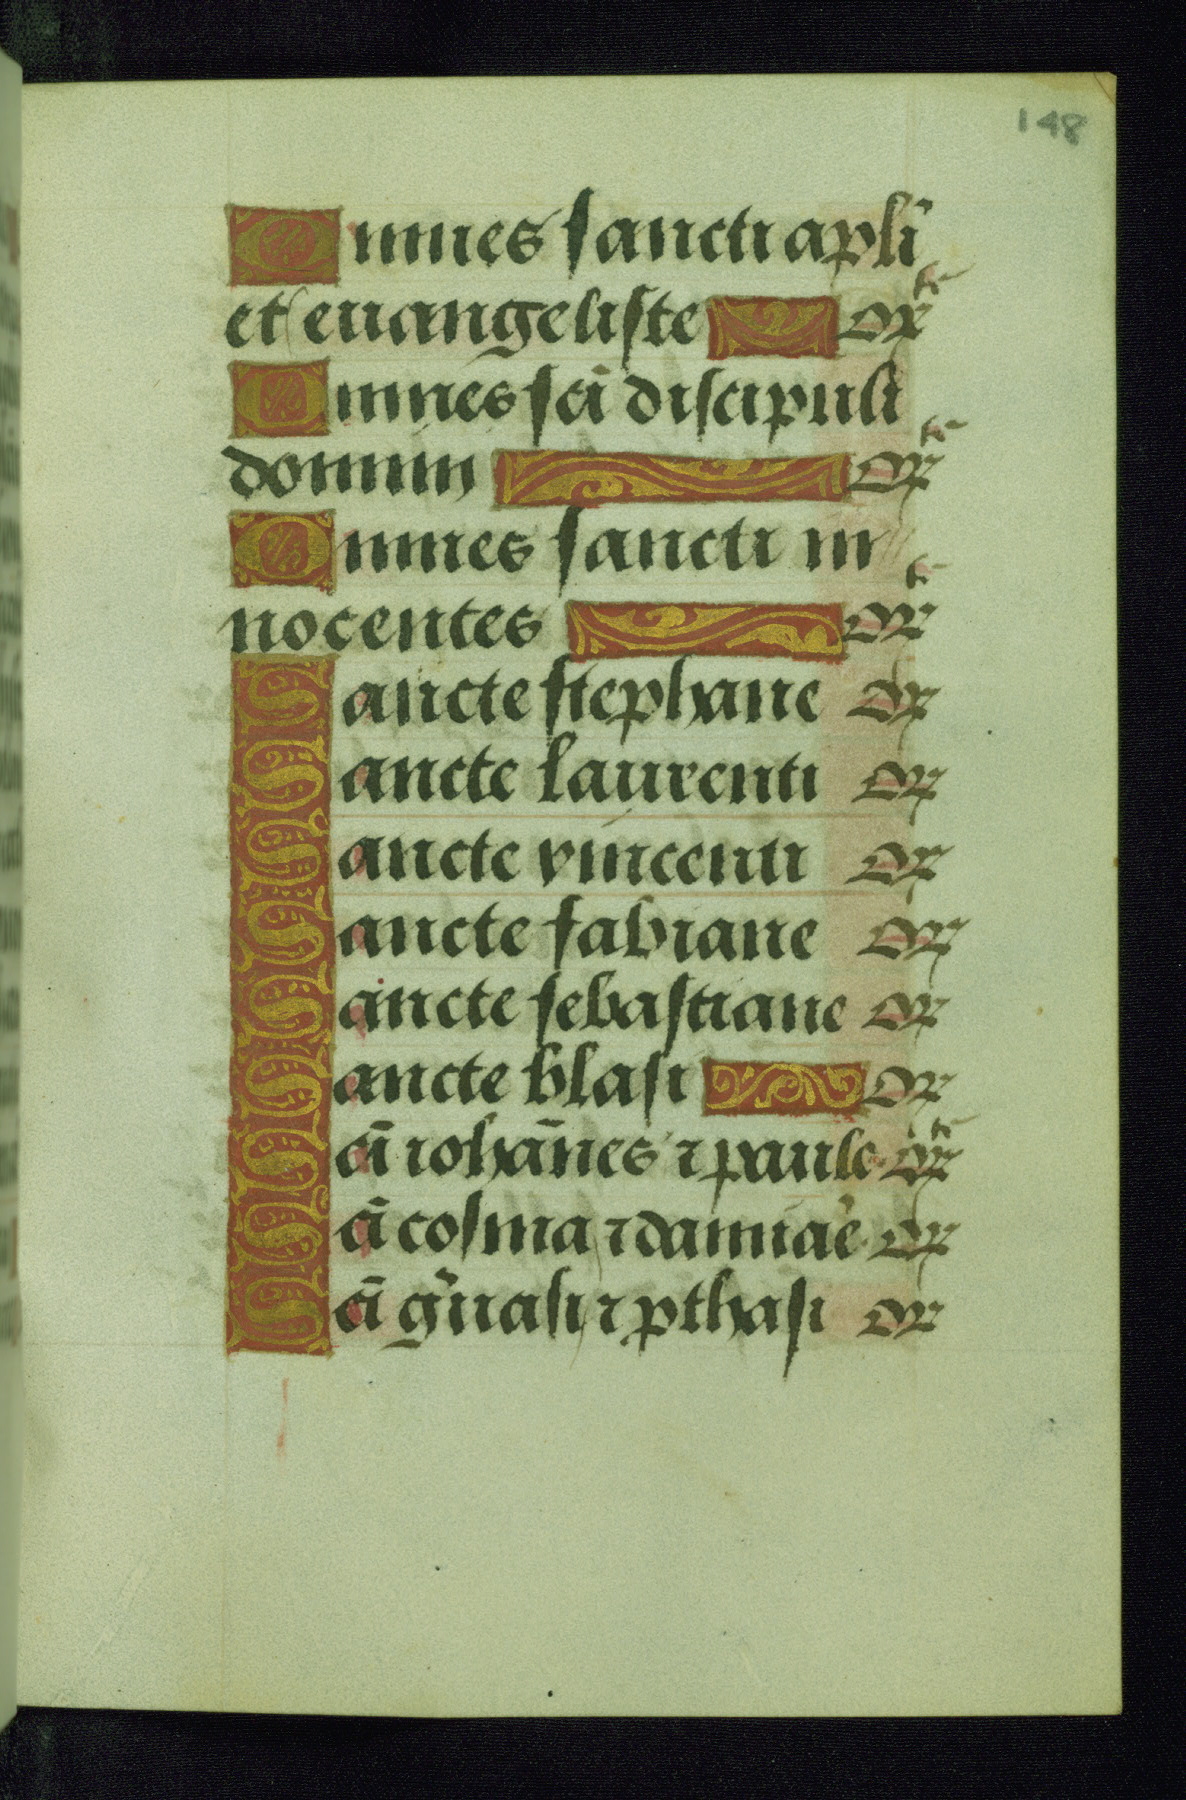 148
Omnes sancti apl̄i
et euangeliste or̄
Omnes sc̄i discipuli
domini or̄
Omnes sancti in
nocentes or̄
Sancte stephane or
Sancte laurenti or
Sancte vincenti or
Sancte fabiane or
Sancte sebastiane or
Sancte blasi or
Sc̄i iohānes ⁊ paule or̄
Sc̄i cosma ⁊ damiāe or
Sc̄i g̃uasi ⁊ pthasi or